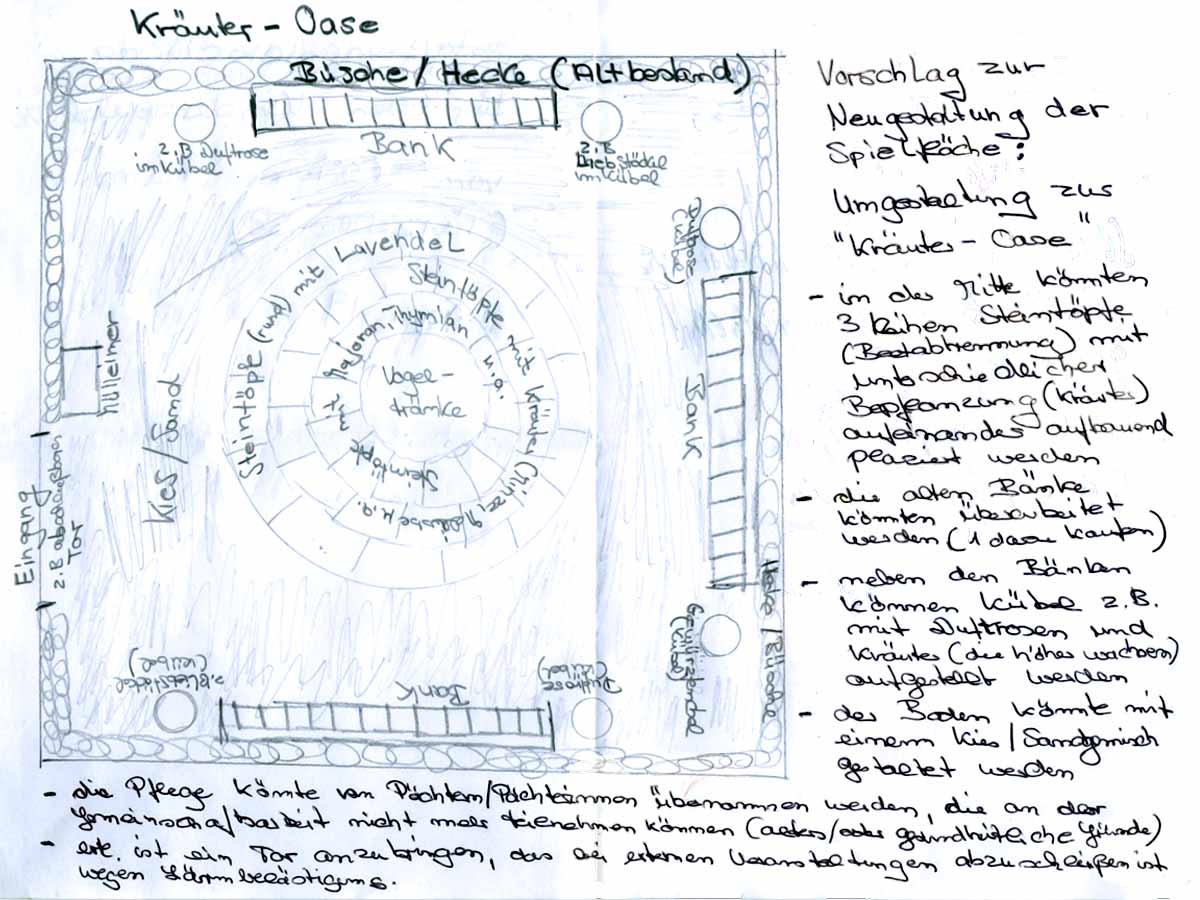 Kräuter - Oase
Büsche / Hecke (Altbestand)
z.B Duftrose
im Kübel
Bank
z.B
Liebstöckel
im Kübel
Duftrose
(Kübel)
Steintöpfe (rund) mit Lavendel
Steintöpfe mit Kräuter (Minze,
u.a.
Steintöpfe mit Majoran, Thymian
u.a.
Vogel-
tränke
Mülleimer
Kies / Sand
Eingang
z.B abschließbar
Tor
Bank
Hecke / Büsche
Gewürzfenchel
(Kübel)
z.B Liebstöckel
(Kübel)
Bank
Duftrose
(Kübel)
Vorschlag zur
Neugestaltung der
Spielfläche:
Umgestaltung zur
"Kräuter - Oase"
- in der Mitte könnten
3 Reihen Steintöpfe
(Beetabtrennung) mit
unterschiedlicher
Bepflanzung (Kräuter)
aufeinander aufbauend
plaziert werden
- die alten Bänke
könnten überarbeitet
werden (1 dazu kaufen)
- neben den Bänken
können Kübel z.B.
mit Duftrosen und
Kräuter (die höher wachsen)
aufgestellt werden
- der Boden könnte mit
einem Kies / Sandgemisch
gestaltet werden
- die Pflege könnte von Pächtern/Pächterinnen übernommen werden, die an der
Gemeinschaftsarbeit nicht mehr teilnehmen können (alters/oder gesundheitliche Gründe)
- evt. ist ein Tor anzubringen, das bei externen Veranstaltungen abzuschließen ist
wegen Lärmbelästigung.